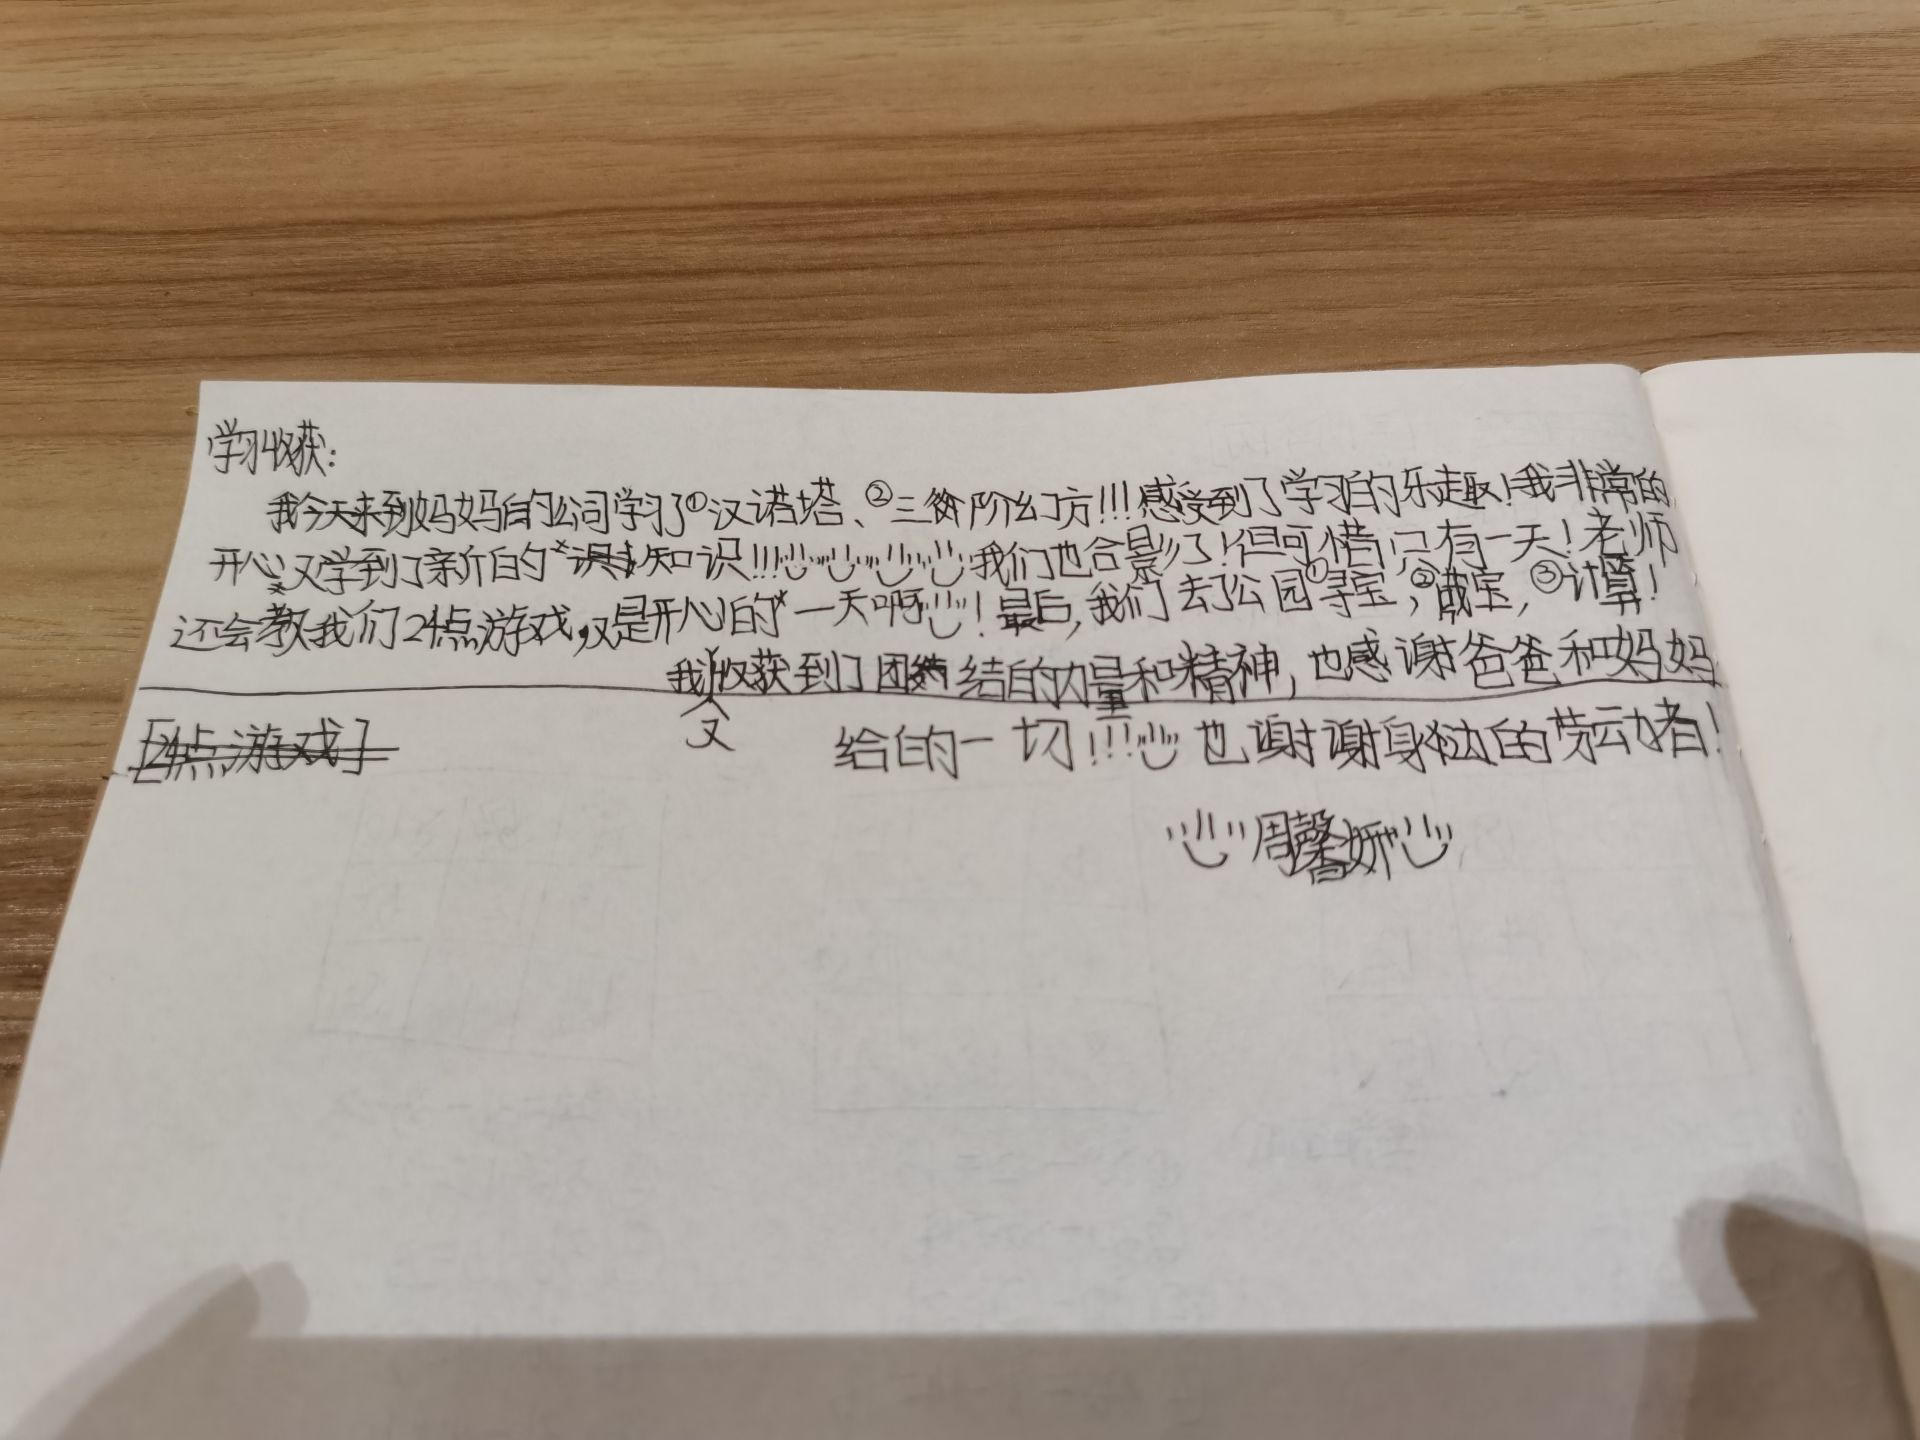 学习收获:
我今天来到妈妈的公司学习了①汉诺塔、②三阶幻方!!!感受到了学习的乐趣!我非常的
开心,又学到了新的知识!!!我们也合影了!但可惜只有一天!老师
还会教我们24点游戏,又是开心的一天啊!最后,我们去了公园①寻宝,②藏宝,③计算!
我又收获到了团结的力量和精神,也感谢爸爸和妈妈
[24点游戏]
给的一切!!!也谢谢身边的劳动者!
周馨妍